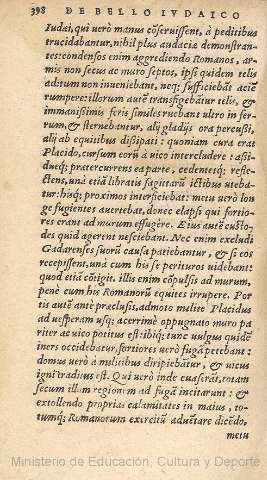 398 DE BELLO IVDAICO
Iudæi, qui verò manus cōseruissent, à peditibus
trucidabantur, nihil plus audaciæ demonstran-
tes: condensos enim aggrediendo Romanos, ar-
mis non secus ac muro septos, ipsi quidem telis
aditum non inueniebant, neq; sufficiebāt aciē
rumpere: illorum autē transfigebātur telis, &
immanissimis feris similes ruebant vltro in fer-
rum, & sternebantur, alij gladijs ora percussi,
alij ab equitibus dissipati: quoniam cura erat
Placido, cursum eorū à vico intercludere: assi-
dueq; præterurrens ea parte, cedenteq; refle-
ctens, unà etiā libratis sagittarū ictibus uteba-
tur: hisq; proximos interficiebat: metu verò lon-
ge fugientes auertebat, donec elapsi qui fortio-
res erant ad murum effugêre. Eius autē custo-
des quid agerent nesciebant. Nec enim excludi
Gadarenses suorū causa patiebantur, & si eos
recepissent, unà cum his se perituros uidebant:
quod etiā cōtigit. illis enim cōpulsis ad murum,
penè cum his Romanorū equites irrupere. Por
tis autē antè præclusis, admoto milite Placidus
ad uesperam usq; acerrimè oppugnato muro pa
riter ac vico potitus est: ibiq; tunc uulgus quidē
iners occidebatur, fortiores verò fuga petebant:
domus verò à militibus diripiebātur, & uicus
igni traditus est. Qui verò inde euaserāt, totam
secum illam regionem ad fugā incitarunt: &
extollendo proprias calamitates in maius, to-
tumq; Romanorum exercitū aduētare dicēdo,
metu
Ministerio de Educación, Cultura y Deporte